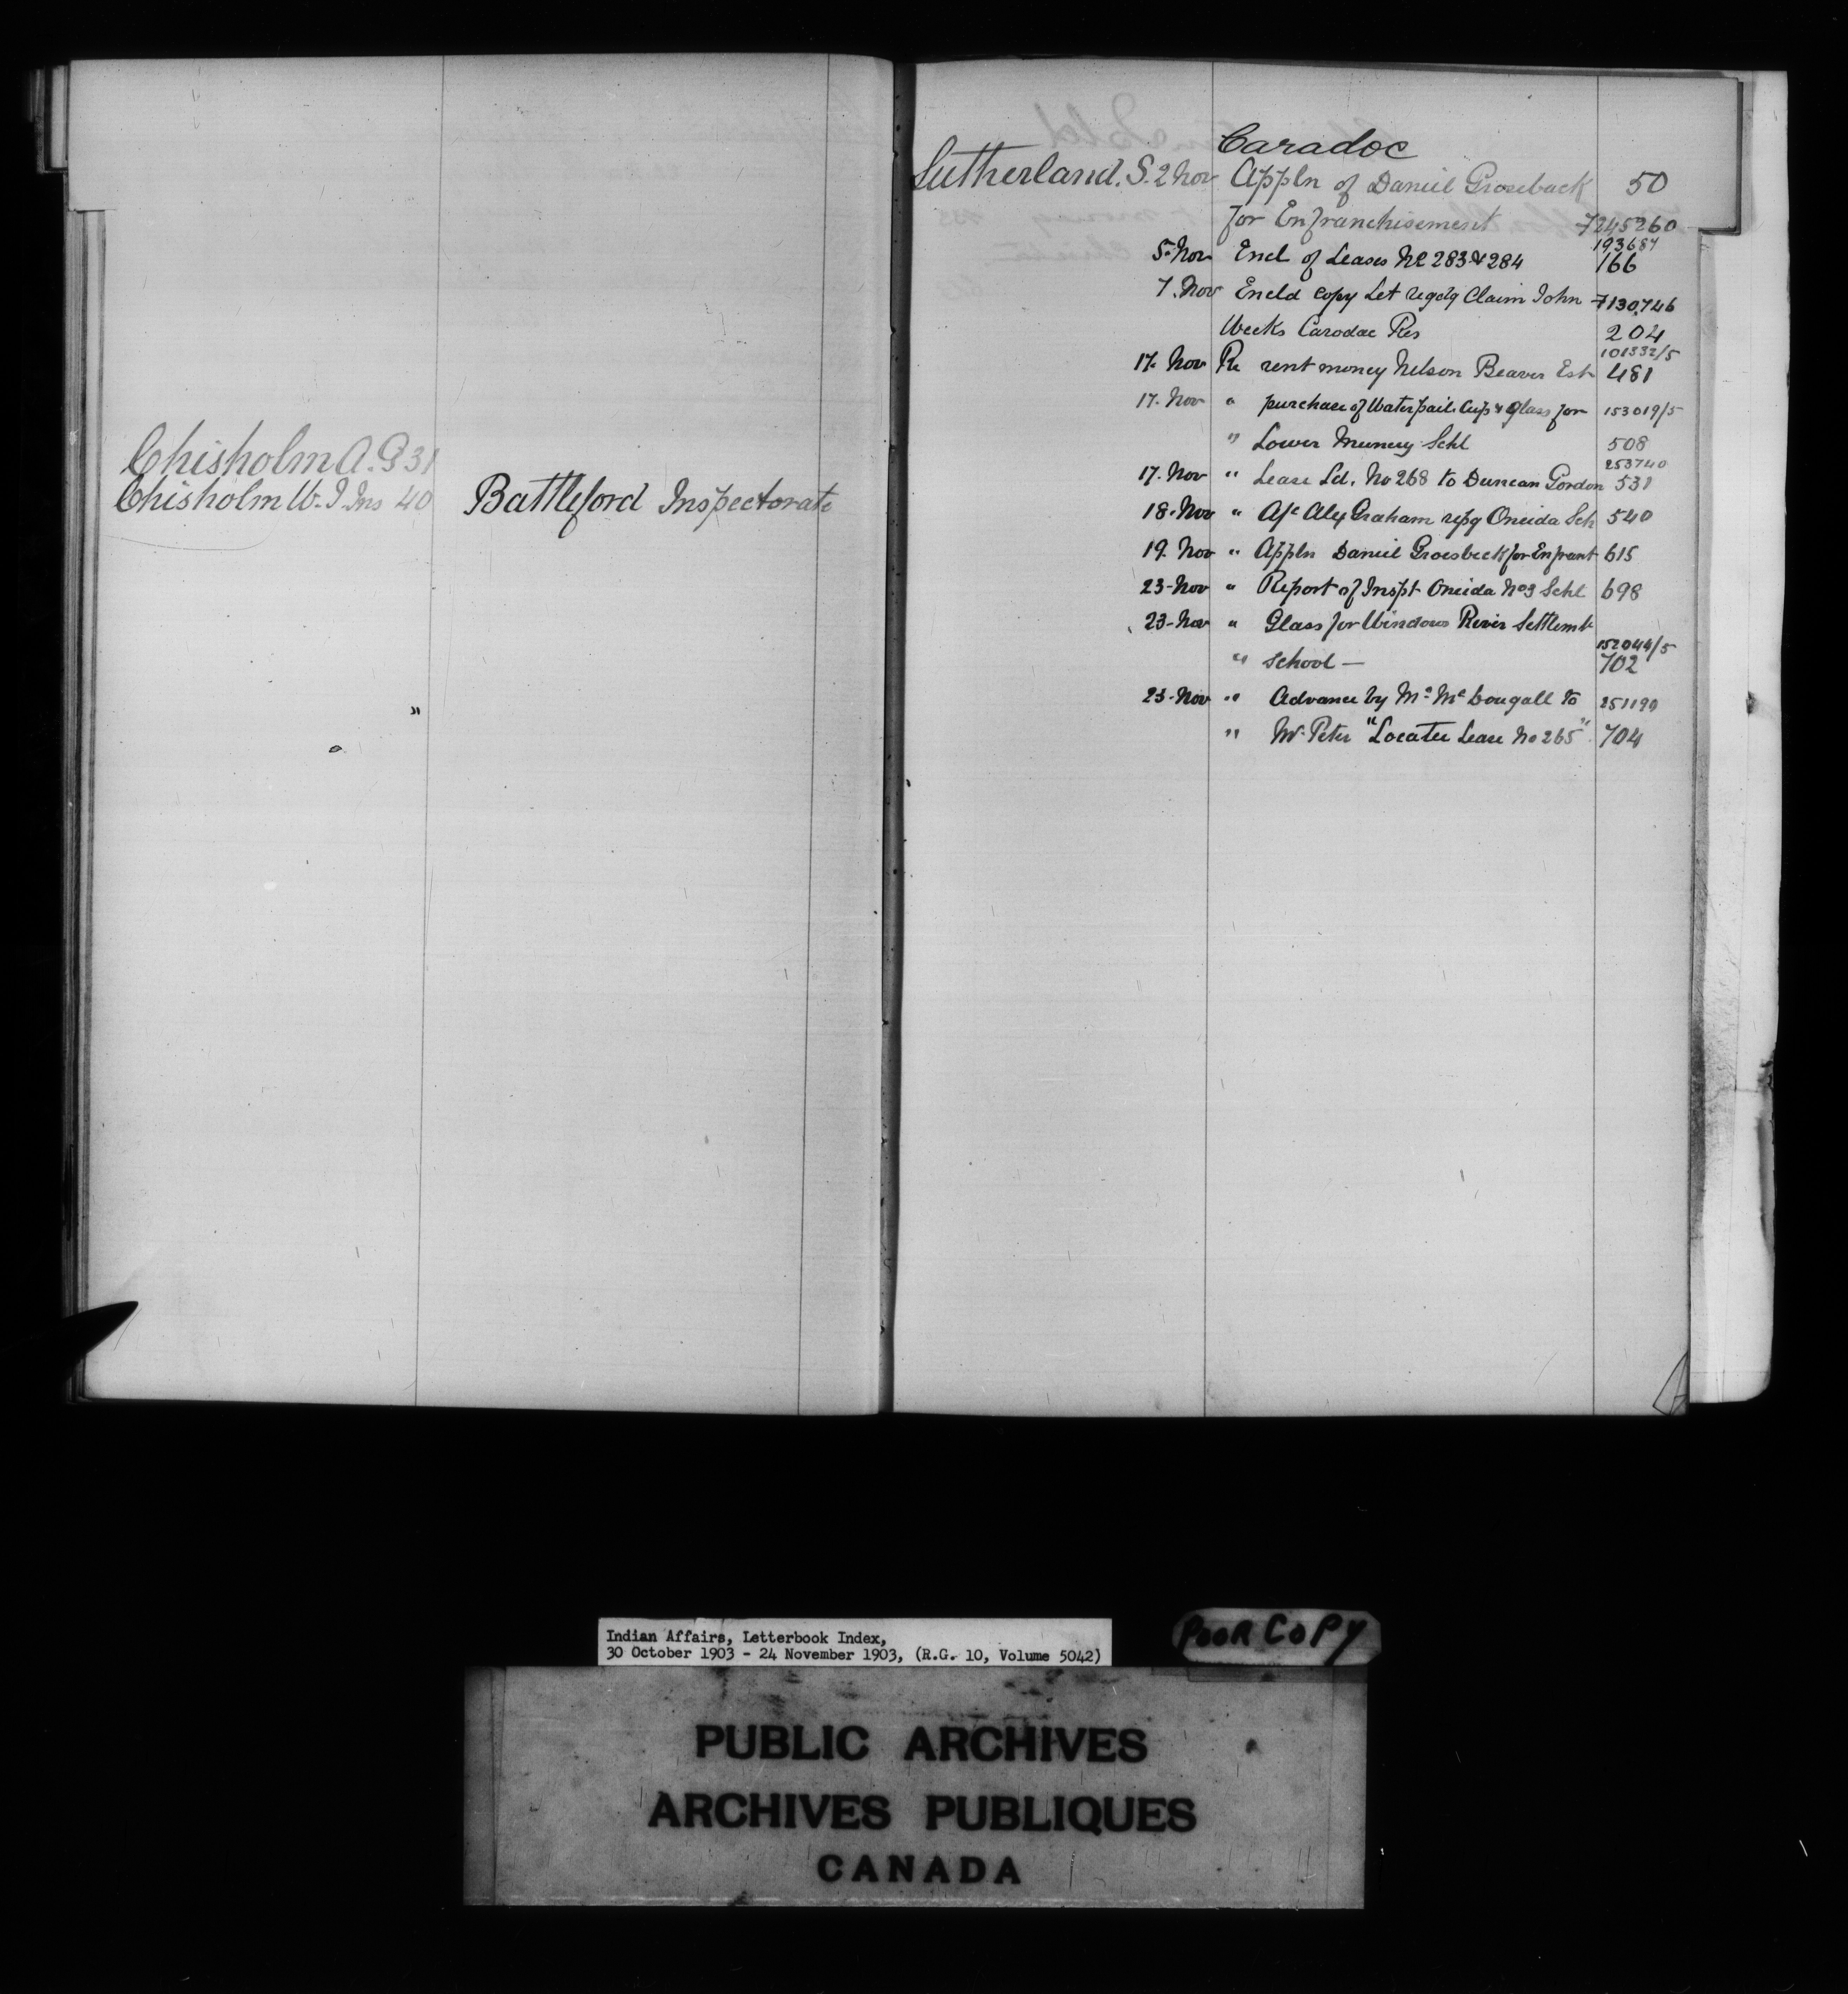 Chisholm A. G 31
Chisholm W. J. Ins 40 Battleford Inspectorate
"
Caradoc
Sutherland. S. 2 Nov Appln of Daniel Groseback 50
for Enfranchisement 7245260
193687
5. Nov Encl of Leases No 283 & 284 166
7. Nov Encld copy Let regdg Claim John 7130,746
Weeks Carodac Res 204
101332/5
17. Nov Re rent money Nelson Beaver Est 481
17. Nov " purchase of Waterpail. Cup & Glass for 153019/5
" Lower Muncey Schl 508
253740
17. Nov " Lease Ld. No 268 to Duncan Gordon 531
18. Nov " A/c Alex Graham repg Oneida Sch 540
19. Nov " Appln Daniel Groesbeck for Enfrant 615
23-Nov " Report of Inspt Oneida No 3 Schl 698
23-Nov " Glass for Windows River Settlemt
152044/5
" School — 702
23-Nov " Advance by Mr McDougall to 251190
" W. Peter "Locatee Lease No 265" 704
Indian Affairs, Letterbook Index,
30 October 1903 - 24 November 1903, (R.G. 10, Volume 5042)
POOR COPY
PUBLIC ARCHIVES
ARCHIVES PUBLIQUES
CANADA